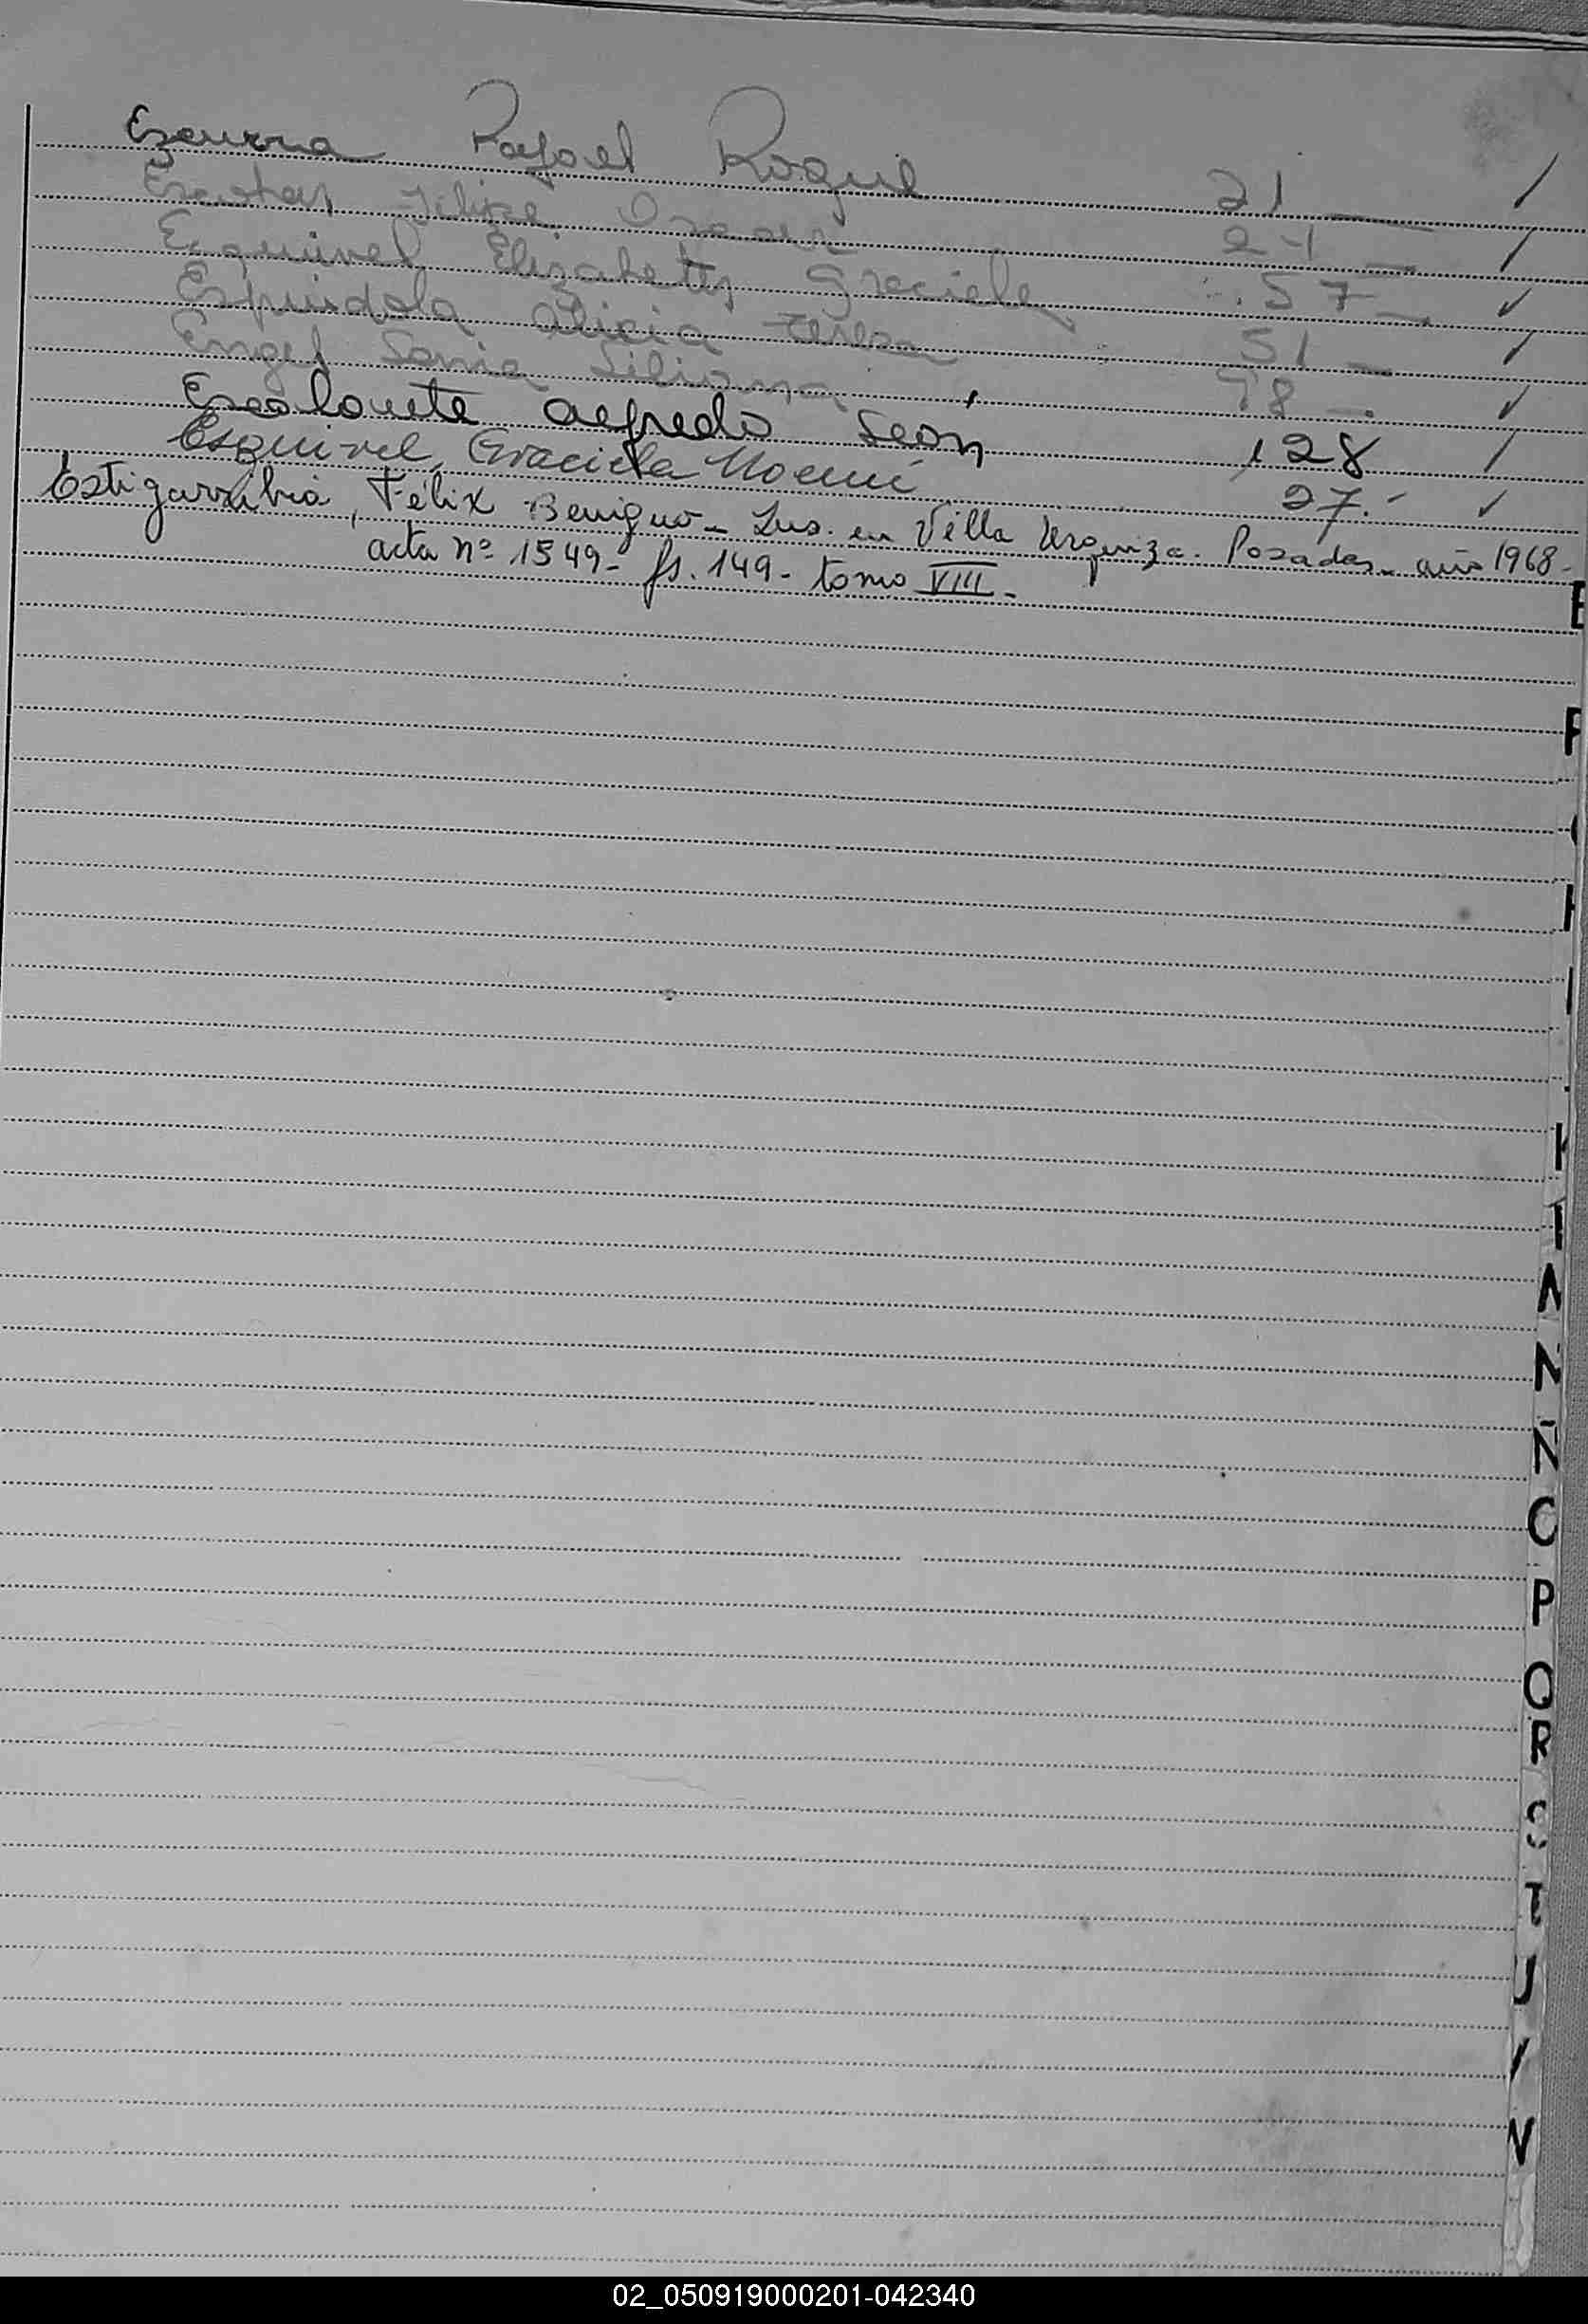 Ezcurra Rafael Roque 21 —
Escobar Felipe Oscar 21 —
Esquivel Elizabeth Graciela 57 —
Espindola Alicia Teresa 51 —
Engel Sonia Liliana 78 —
Escalante Alfredo León 128
Esquivel, Graciela Noemí 27.-
Estigarribia, Félix Benigno - Ins. en Villa Urquiza. Posadas - año 1968 -
acta nº 1549 - fs. 149 - tomo VIII -
E
F
I
A
N
Ñ
O
P
Q
R
S
T
U
V
02_050919000201-042340